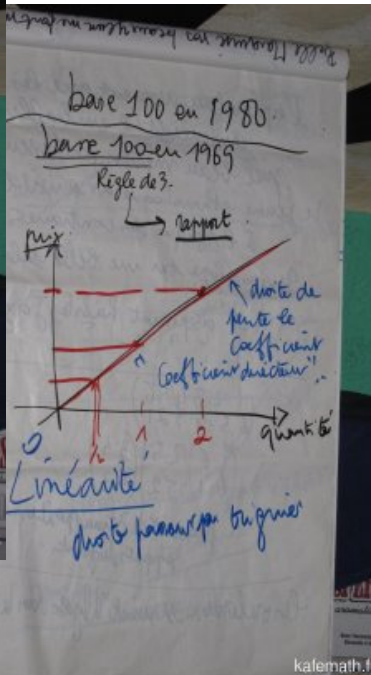 base 100 en 1980.
base 100 en 1969
Règle de 3.
→ rapport.
prix
droite de
pente le
coefficient
"Coefficient directeur"
0 1/2 1 2
quantité
Linéarité
droite passant par l'origine
kafemath.f